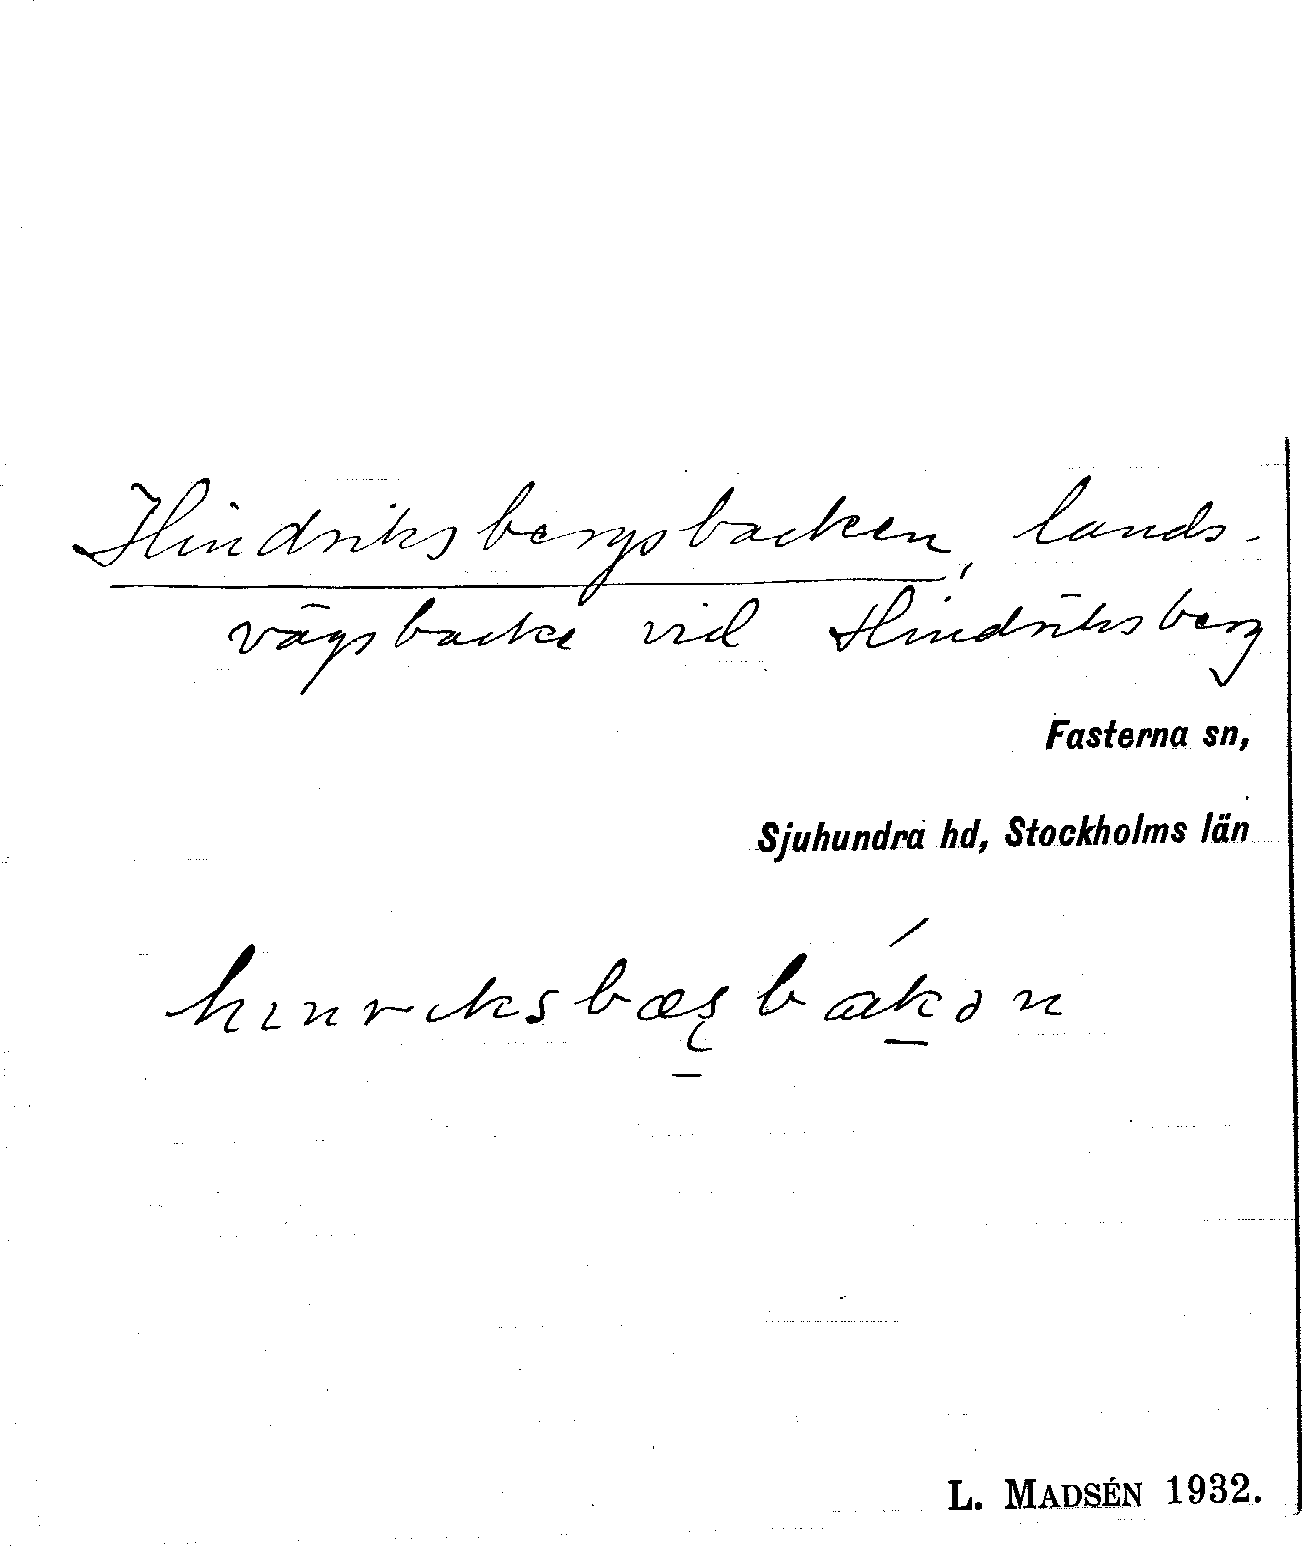 Hindriksbergsbacken, lands-
vägsbacke vid Hindriksberg
Fasterna sn,
Sjuhundra hd, Stockholms län
hınrıksbæʂbákən
L. MADSÉN 1932.